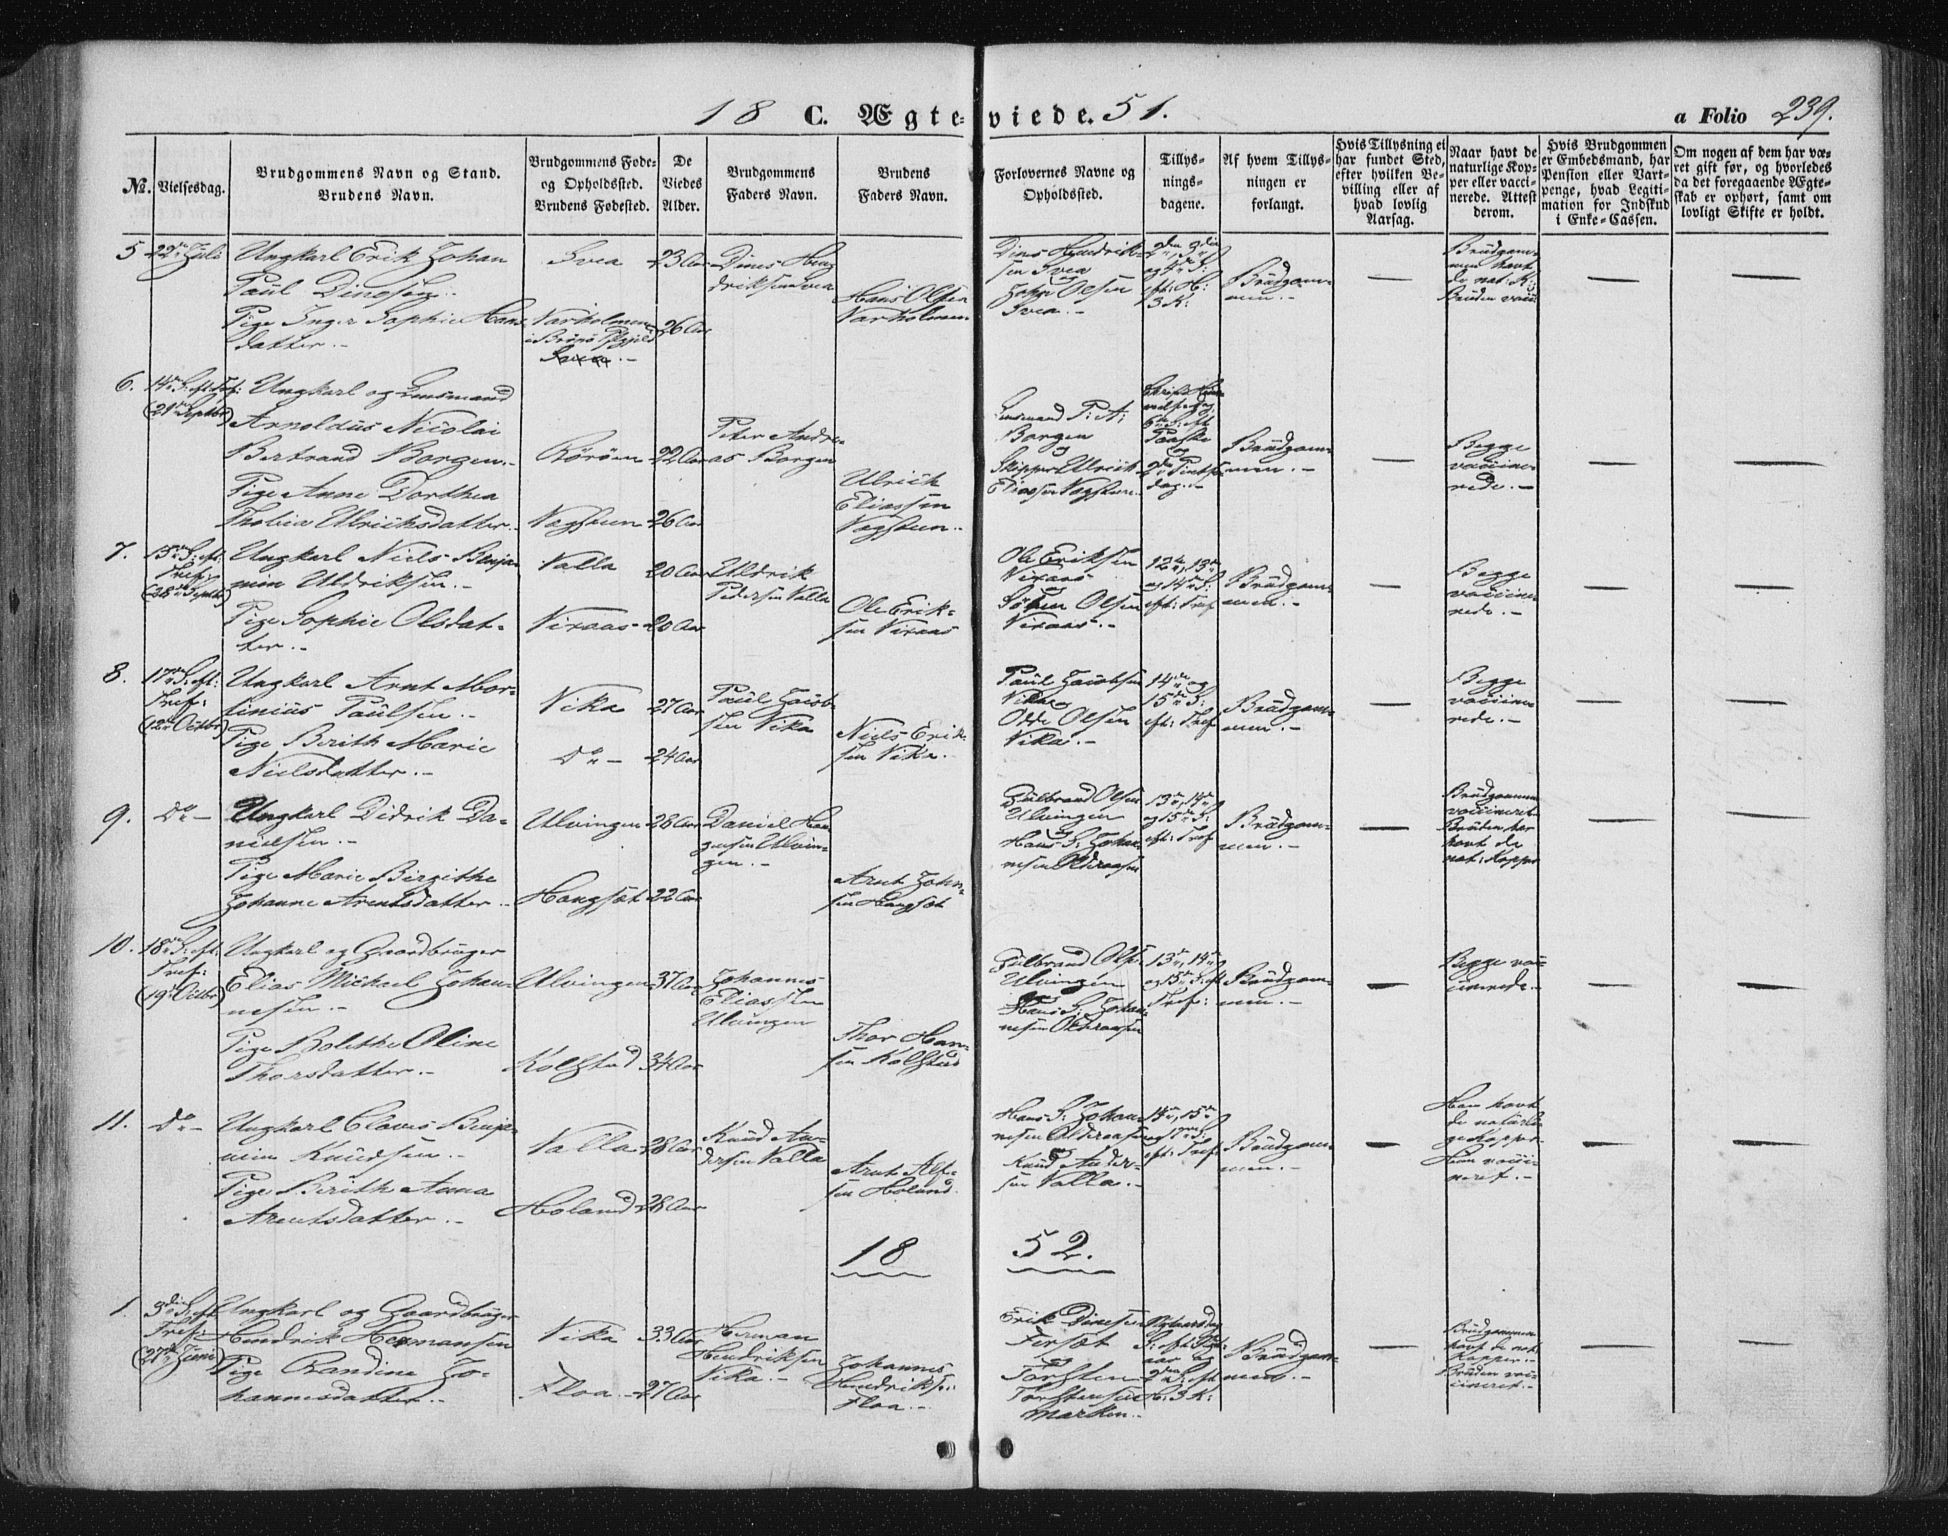 18 C. Ægte-viede. 51.
a Folio 239.
No.
Vielsesdag.
Brudgommens Navn og Stand.
Brudens Navn.
Brudgommens Føde-
og Opholdssted.
Brudens Fødested.
De
Viedes
Alder.
Brudgommens
Faders Navn.
Brudens
Faders Navn.
Forlovernes Navne og
Opholdssted.
Tillys-
nings-
dagene.
Af hvem Tillys-
ningen er
forlangt.
Hvis Tillysning ei
har fundet Sted,
efter hvilken Be-
villing eller af
hvad lovlig
Aarsag.
Naar havt de
naturlige Kop-
per eller vacci-
nerede. Attest
derom.
Hvis Brudgommen
er Embedsmand, har
Pension eller Vart-
penge, hvad Legiti-
mation for Indskud
i Enke-Cassen.
Om nogen af dem har væ-
ret gift før, og hvorledes
da det foregaaende Ægte-
skab er ophørt, samt om
lovligt Skifte er holdt.
5
22de Juli
Ungkarl Erik Johan
Paul Dinesen.
Pige Inger Sophie Hans
datter.
Svea
Varholmen
i Brønø
23 Aar
26 Aar
Dines Hen
driksen Svea
Hans Olsen
Varholmen
Dines Hendrik-
sen Svea
Olsen
Svea.
og
eft: H:
3 K:
Brudgom-
men.
Brudgom-
men havt
de nat: K:
Bruden vacci
6.
14de S: eft: Tref:
(21de Septbr)
Ungkarl og Lensmand
Arnoldus Nicolai
Bertrand Borgen.
Pige Anne Dorthea
Thobia Ulrichsdatter.
Rörøen
Vagstun
22 Aar
26 Aar
Peter Andre-
as Borgen
Ulrich
Eliassen
Vagstun.
Lensmand P: A:
Borgen
og
Skipper Ulrich
Eliassen Vagstun.
Paaske
og
2den Pintse
dag.
Brudgom-
men.
Begge
vaccine-
rede.
7.
15de S: eft:
Tref:
(28de Septbr)
Ungkarl Niels Benja
min Uldriksen.
Pige Sophie Olsdat-
ter.
Valla
Viraas
20 Aar
20 Aar
Uldrik
Pedersen Valla
Ole Erik-
sen Viraas
Ole Eriksen
Viraas
Sören Olsen
Viraas.
12te, 13de
og 14de S:
eft: Tref
Brudgom-
men.
Begge
vaccine-
rede.
8.
17de S: eft:
Tref:
(12te Octbr)
Ungkarl Arnt Mor-
tinius Paulsen.
Pige Berith Marie
Nielsdatter.
Vika
Do
27 Aar
24 Aar
Paul Jacob-
sen Vika
Niels Erik-
sen Vika.
Paul Jacobsen
Vika og
Odde Olsen
Vika.
14de og
15de S:
eft: Tref
Brudgom-
men.
Begge
vaccine-
rede.
9.
Do
Ungkarl Didrik Da-
nielsen.
Pige Marie Birgithe
Johanne Arentsdatter.
Ulvingen
Haugsæt
28 Aar
22 Aar
Daniel Han
sen Ulvin-
gen.
Arnt John-
sen Haugsæt
Gulbrand Olsen
Ulvingen
og
Hans S: Johan-
nesen
13de, 14de
og 15de S:
eft: Tref
Brudgom-
men.
Brudgommen
vaccineret
Bruden har
havt de
nat: Kopper
10.
18de S: eft:
Tref:
(19de Octbr)
Ungkarl og Gaardbruger
Elias Michael Johan-
nesen.
Pige Bolethe Oline
Thorsdatter.
Ulvingen
Kolstad
37 Aar
34 Aar
Johannes
Eliassen
Ulvingen
Thor Han-
sen Kolstad
Gulbrand Ols:
Ulvingen
og
Hans S: Johan-
nesen
13de, 14de
og 15de S: eft
Tref:
Brudgom-
men.
Begge vac-
cinerede.
11.
Do
Ungkarl Claves Benja-
min Knudsen.
Pige Berith Anna
Arentsdatter.
Valla
Holand
28 Aar
28 Aar
Knud An-
dersen Valla
Arnt Alf-
sen Holand.
Hans S: Johan-
nesen
og
Knud Ander-
sen Valla.
14de, 15de
og 17de S:
eft: Tref
Brudgom-
men.
Han havt
de naturli-
ge Kopper
Hun vacci-
neret.
18 52.
1.
3die S: eft
Tref:
(27de Juni)
Ungkarl og Gaardbruger
Hendrik Hermansen
Pige Randine Jo-
hannesdatter.
Vika
Floa.
33 Aar
27 Aar
Herman
Hendriksen
Vika.
Johannes
Hendriks:
Floa.
Erik Dinesen
Fersæt
og
Torsten
Torstensen
Marken.
Nytaarsdag
S: eft: Nyt-
aar og
2den S: eft
H: 3 K:
Brudgom-
men.
Brudgommen
havt de nat
Kopper.
Bruden vac-
cineret.